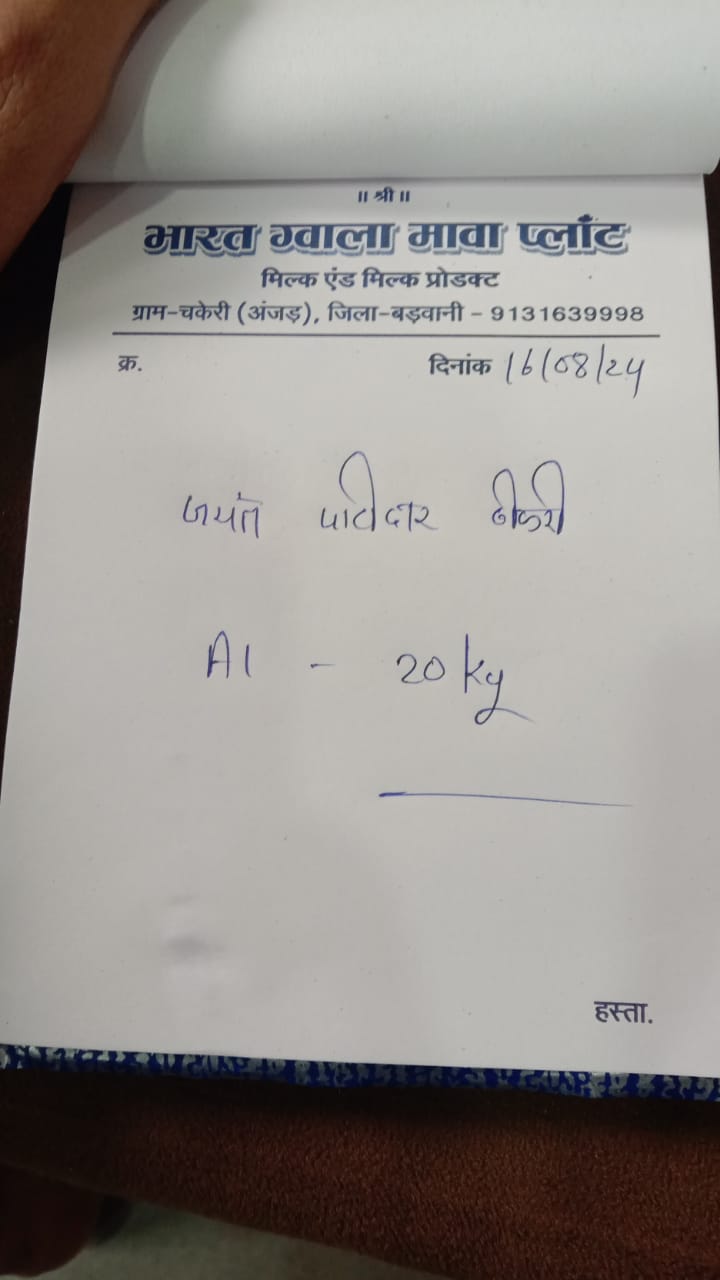 ॥ श्री ॥
भारत ग्वाला मावा प्लाँट
मिल्क एंड मिल्क प्रोडक्ट
ग्राम-चकेरी (अंजड़), जिला-बड़वानी - 9131639998
क्र. दिनांक 16/08/24
जयंत पाटीदार ठीकरी
A1 - 20 kg
हस्ता.